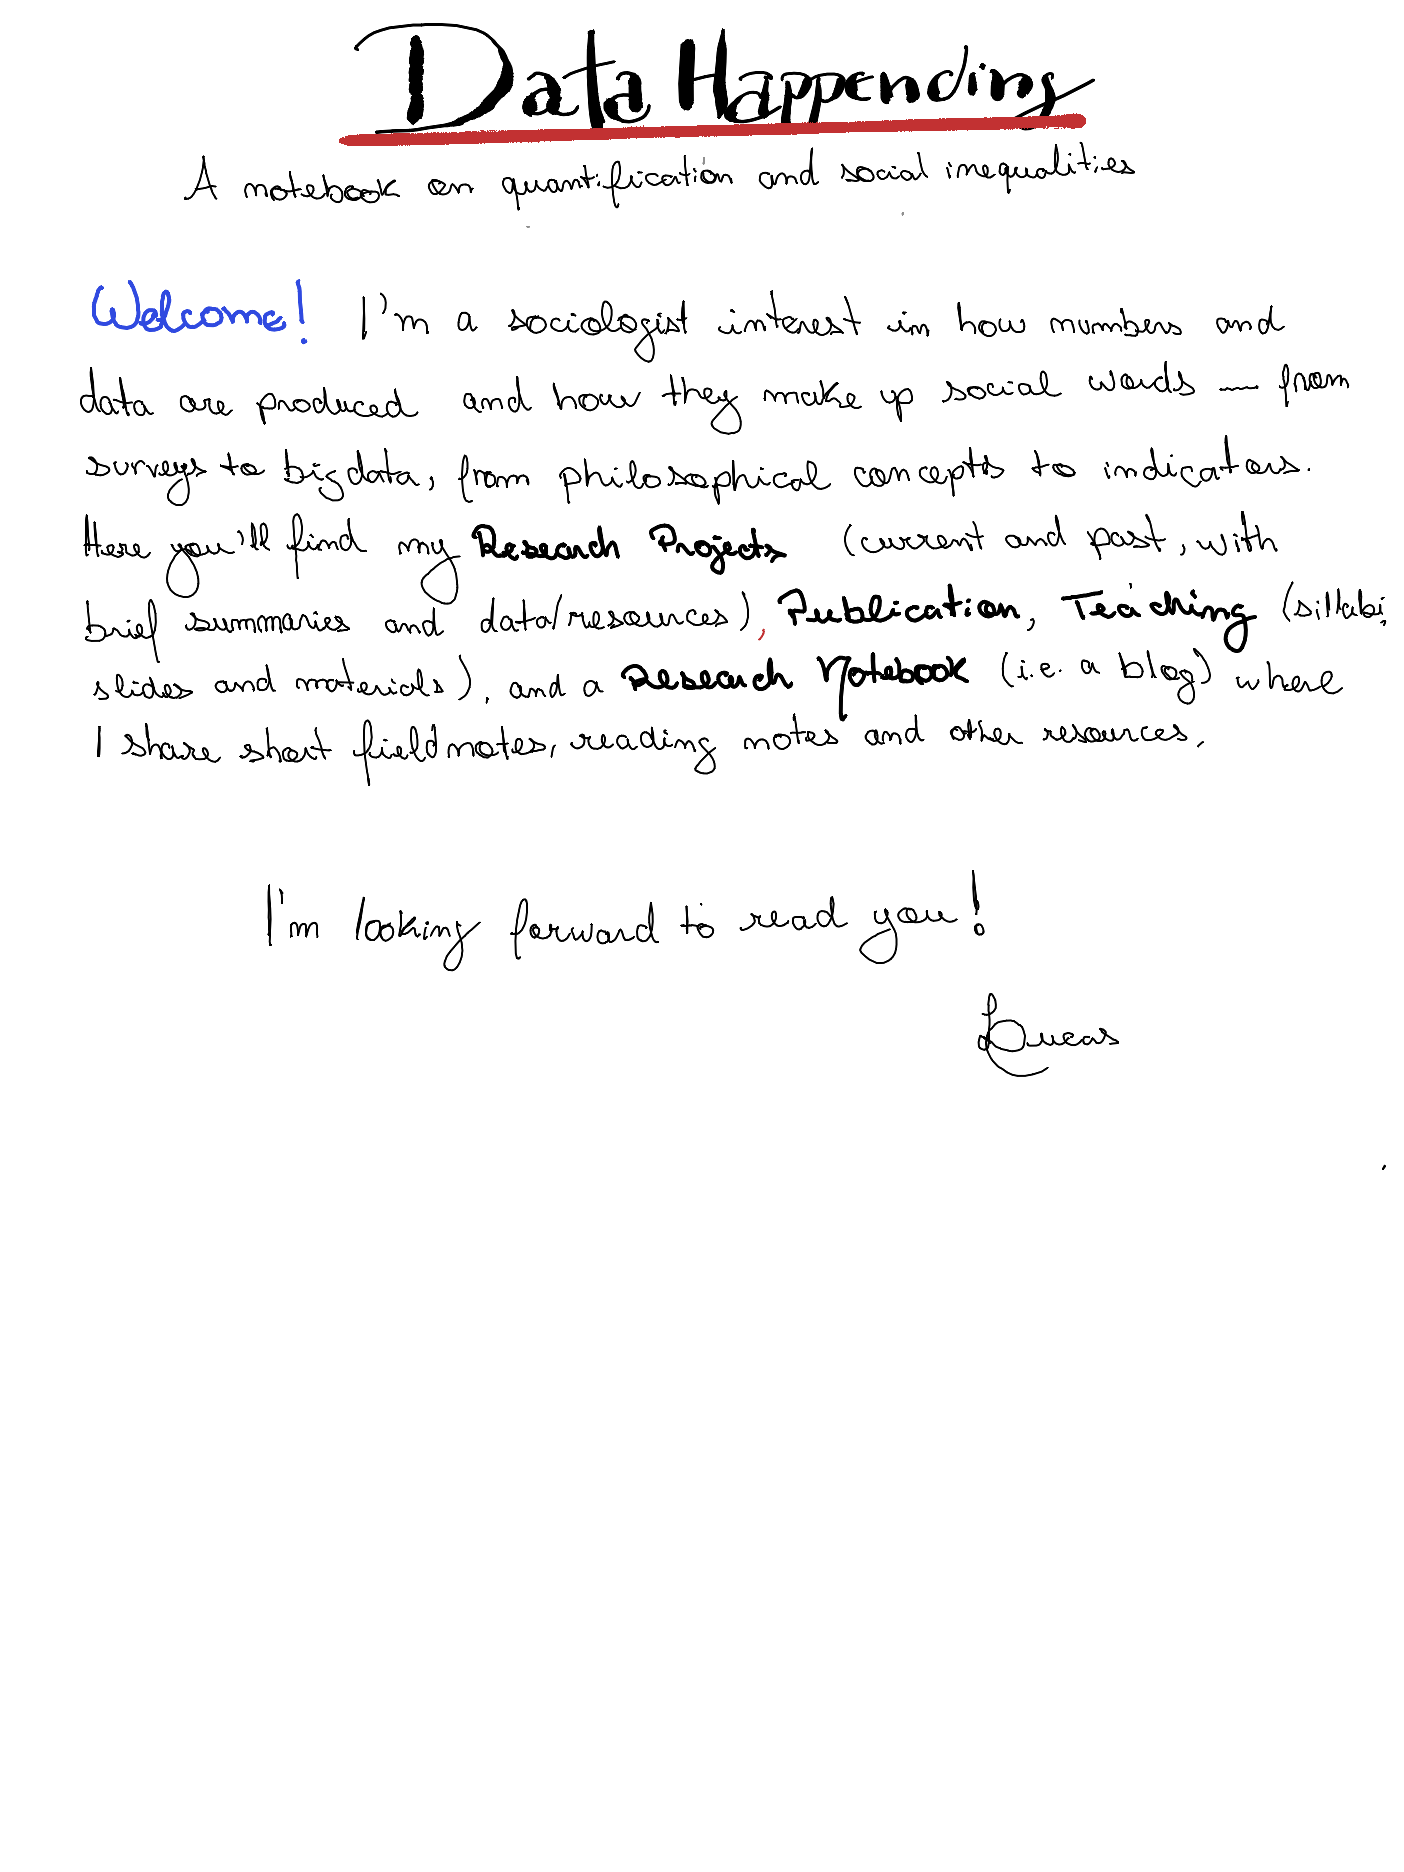 Data Happending
A notebook on quantification and social inequalities
Welcome! I'm a sociologist interest in how numbers and
data are produced and how they make up social words — from
surveys to big data, from philosophical concepts to indicators.
Here you'll find my Research Projects (current and past, with
brief summaries and data/resources), Publication, Teaching (sillabi,
slides and materials), and a Research Notebook (i.e. a blog) where
I share short fieldnotes, reading notes and other resources.
I'm looking forward to read you!
Lucas